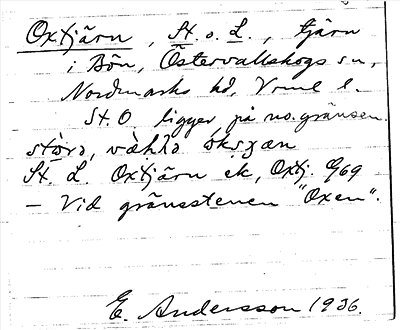 Oxtjärn, St. o. L., tjärn
i Bön, Östervallskogs sn,
Nordmarks hd, Vrml l.
St. O ligger på no. gränsen.
stòrə, vàhlə óksçæn
St. L. Oxtjärn ek, Oxtj. G/69
— Vid gränsstenen "Oxen".
E. Andersson 1936.